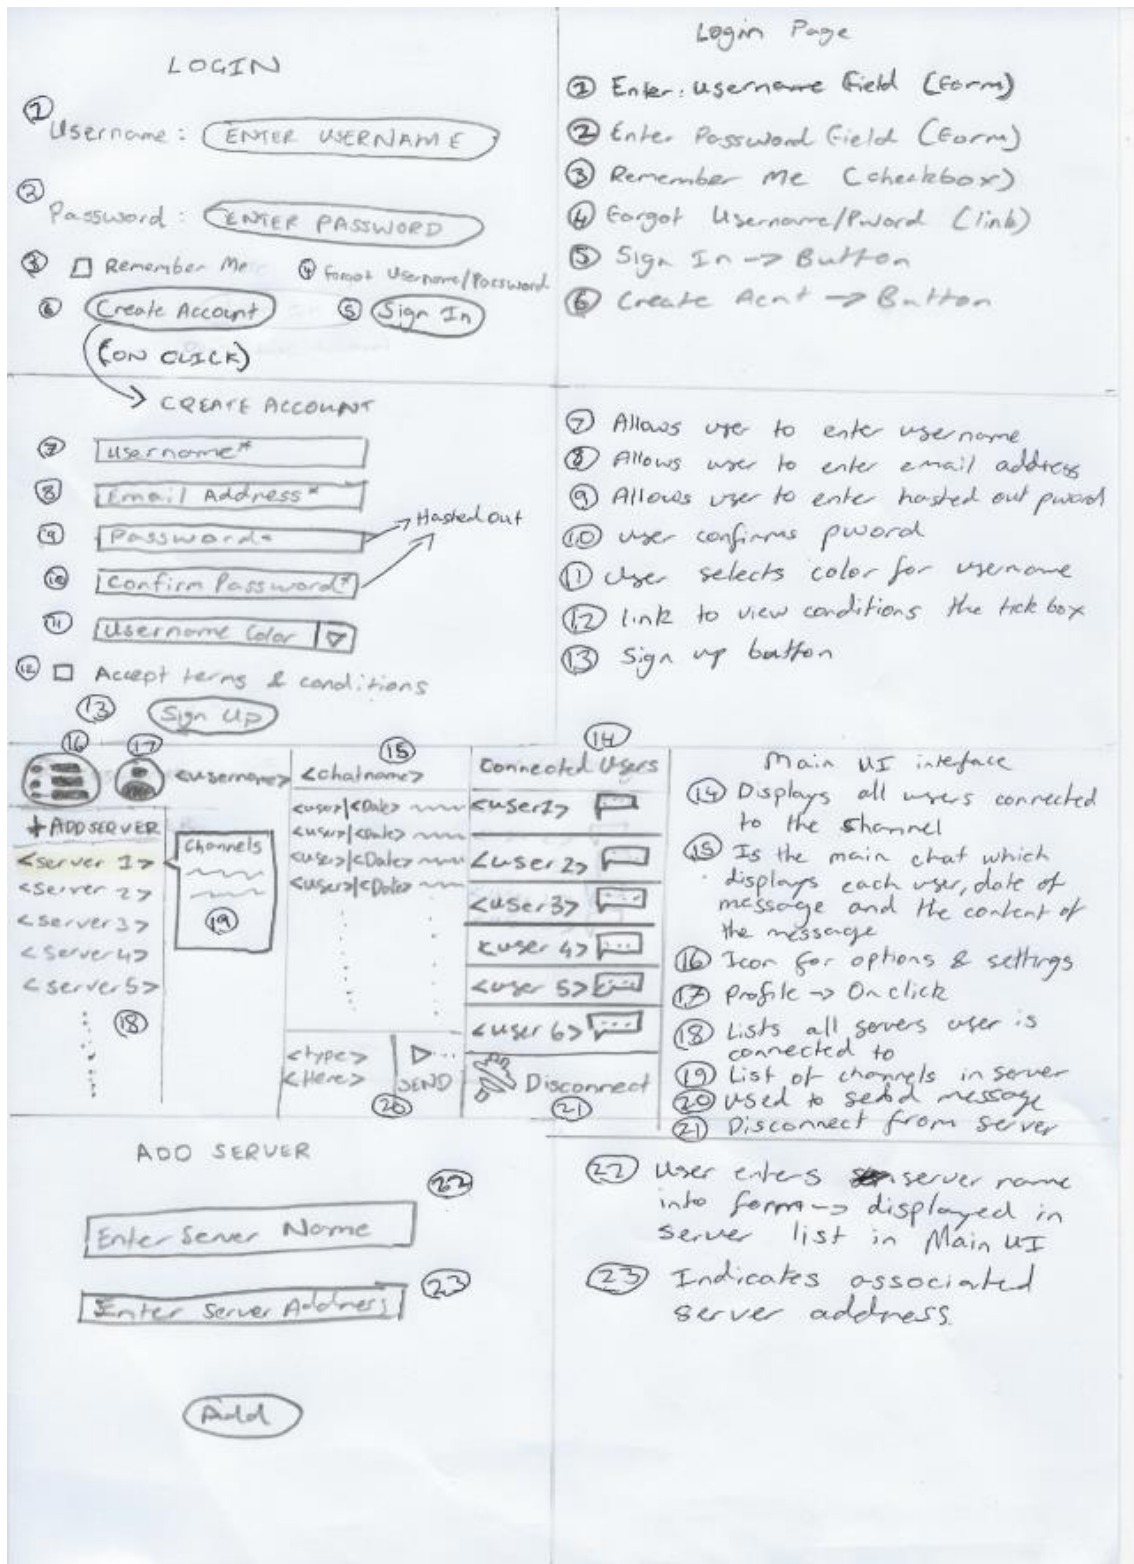 LOGIN
① Username : ENTER USERNAME
② Password : ENTER PASSWORD
③ Remember Me ④ Forgot Username/Password
⑥ Create Account ⑤ Sign In
(ON CLICK)
Login Page
① Enter: Username Field (Form)
② Enter Password Field (Form)
③ Remember Me (checkbox)
④ Forgot Username/Pword (link)
⑤ Sign In -> Button
⑥ Create Acnt -> Button
CREATE ACCOUNT
⑦ Username*
⑧ Email Address*
⑨ Password*
Hasted out
⑩ Confirm Password*
⑪ Username Color
⑫ Accept terms & conditions
⑬ Sign Up
⑦ Allows user to enter username
⑧ Allows user to enter email address
⑨ Allows user to enter hasted out pword
⑩ user confirms pword
⑪ User selects color for username
⑫ link to view conditions the tick box
⑬ Sign up button
⑯ ⑰ <username>
+ ADD SERVER
<server 1>
<server 2>
<server 3>
<server 4>
<server 5>
⑱
Channels
⑲
⑮
<chatname>
<user>|<Date>
<user>|<Date>
<user>|<Date>
<user>|<Date>
<type>
<Here>
SEND
⑳
⑭
Connected Users
<user1>
<user2>
<user3>
<user 4>
<user 5>
<user 6>
Disconnect
㉑
Main UI interface
⑭ Displays all users connected
to the shannel
⑮ Is the main chat which
displays each user, date of
message and the content of
the message
⑯ Icon for options & settings
⑰ Profile -> On click
⑱ Lists all servers user is
connected to
⑲ List of channels in server
⑳ Used to send message
㉑ Disconnect from server
ADD SERVER
㉒
Enter Server Name
㉓
Enter Server Address
Add
㉒ User enters server name
into form -> displayed in
server list in Main UI
㉓ Indicates associated
server address